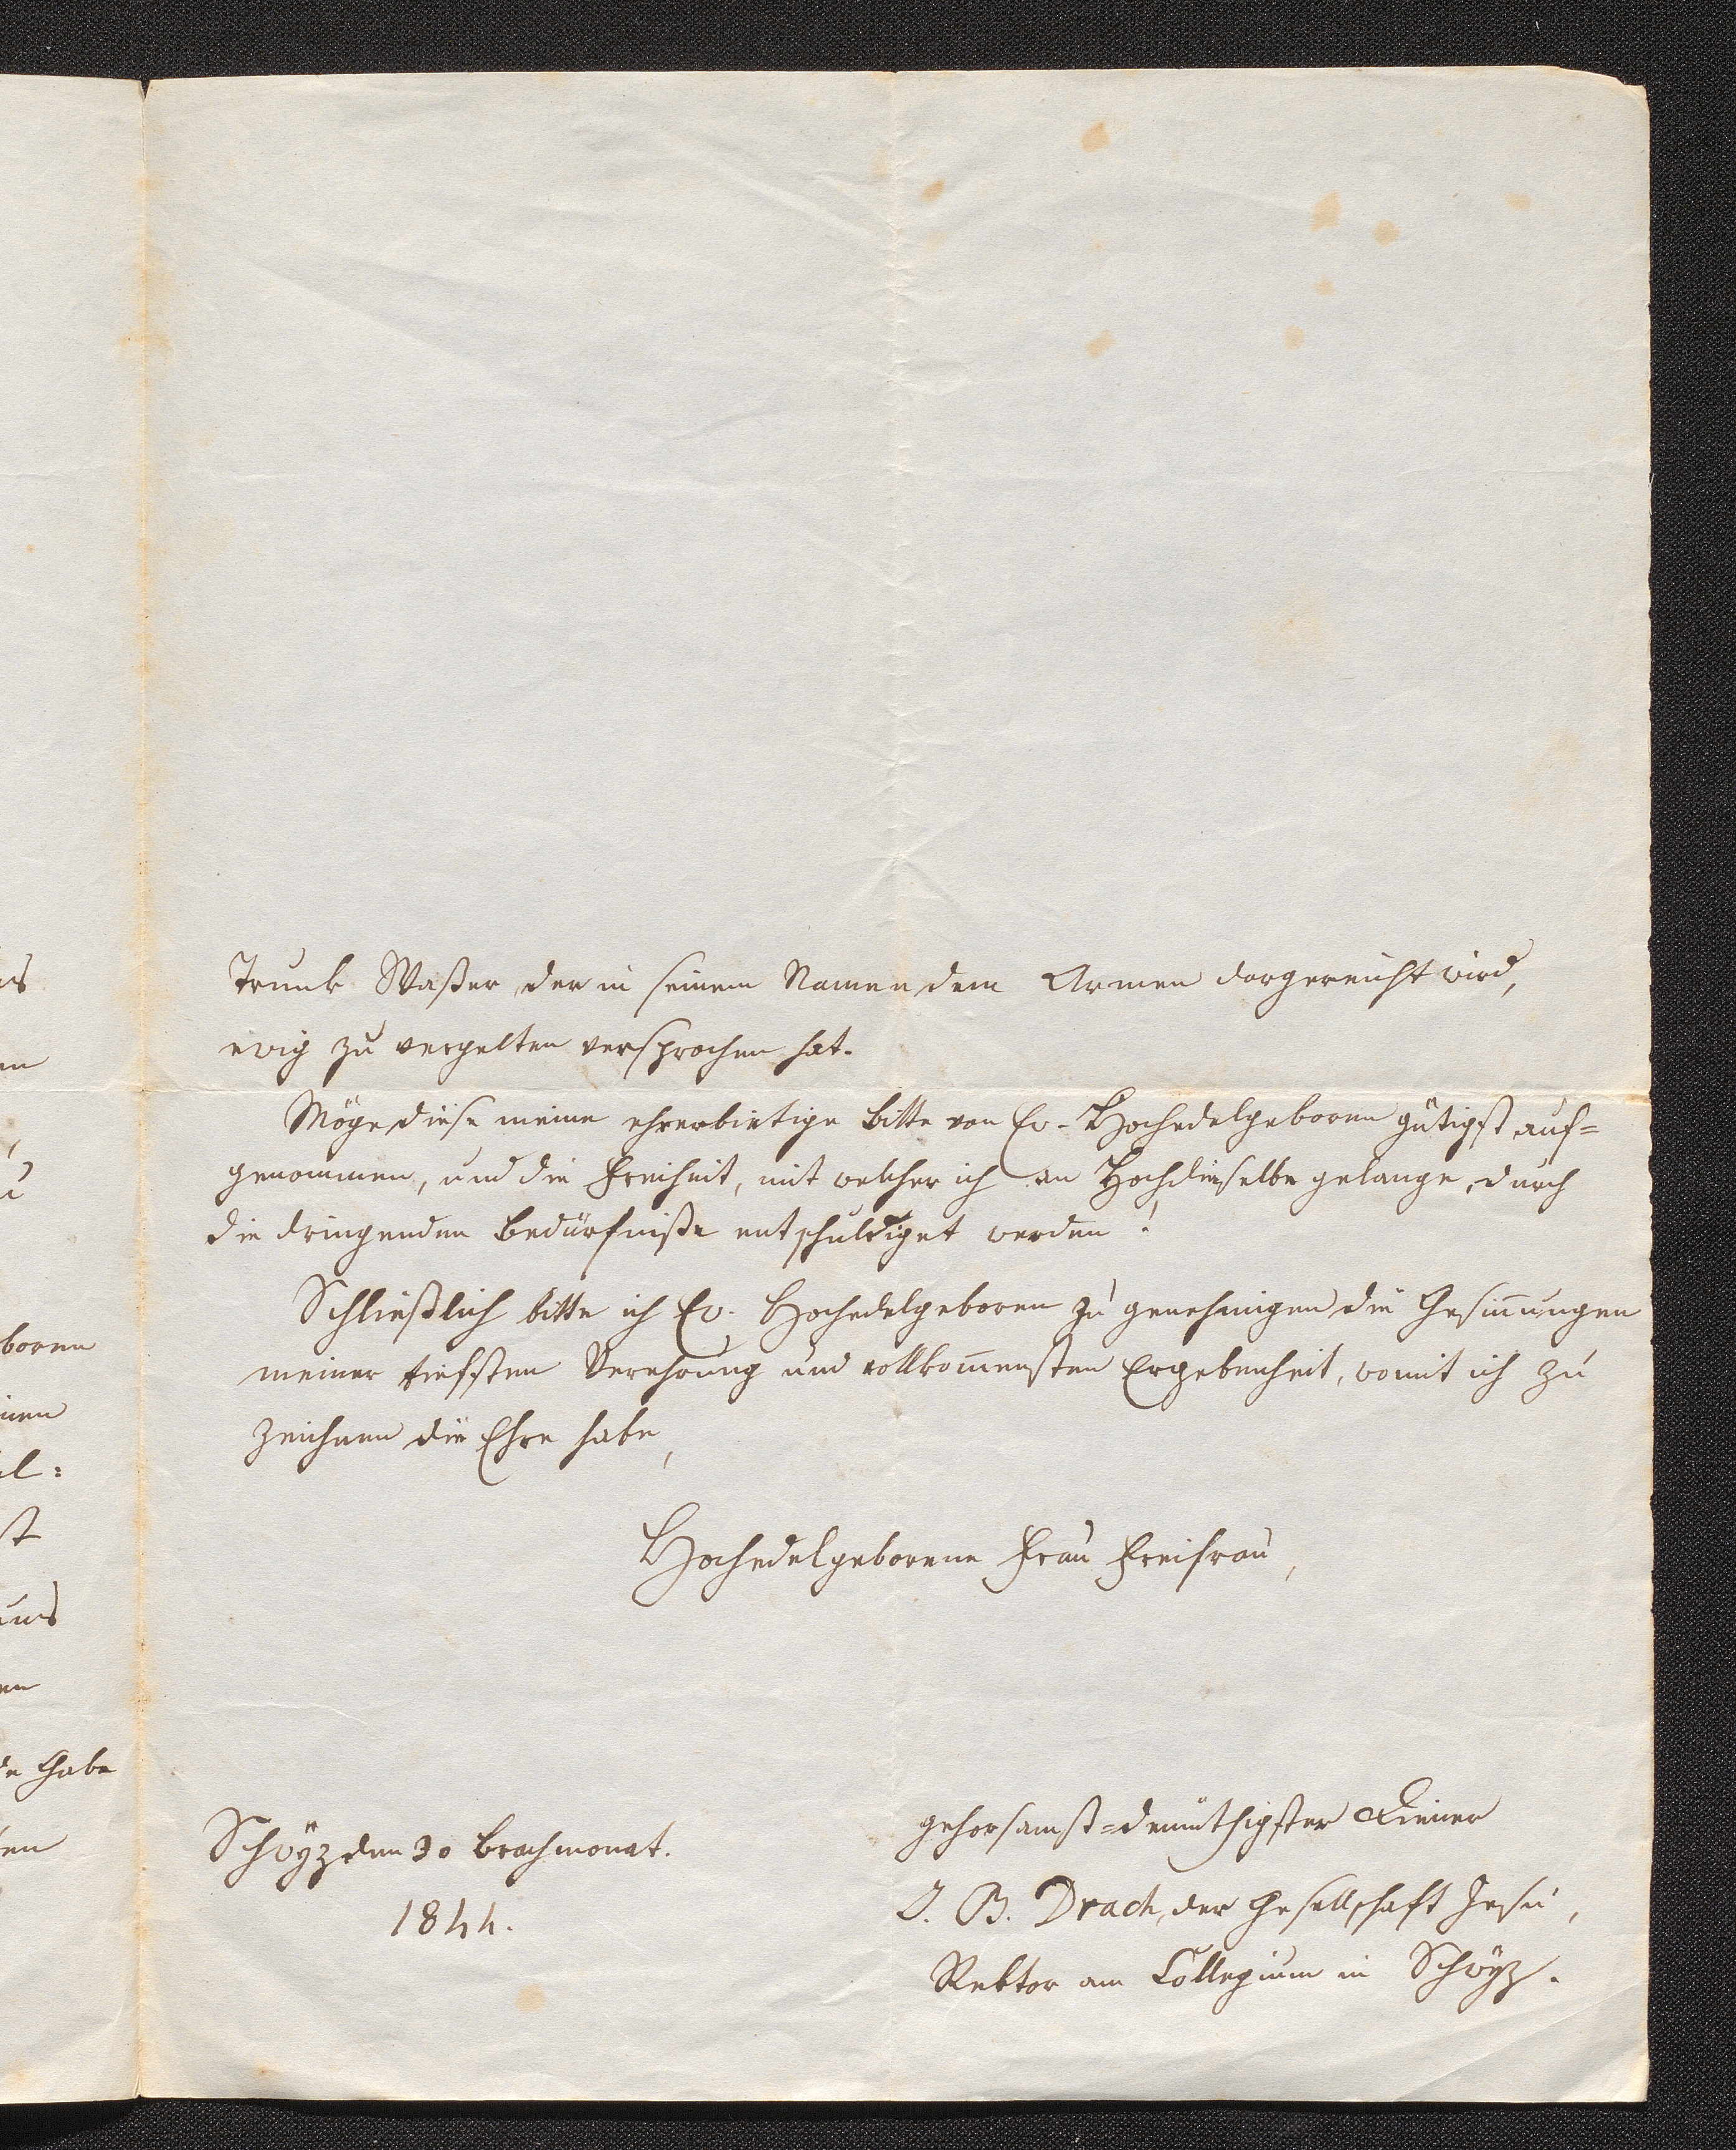 Trunk Waßer, der in seinem Namen dem Armen dargereicht wird,
ewig zu vergelten versprochen hat.
Möge diese meine ehrerbietige Bitte von Ew. Hochedelgeboren gütigst auf=
genommen, und die Freiheit, mit welcher ich an Hochdieselbe gelange, durch
die dringenden Bedürfniße entschuldiget werden!
Schließlich bitte ich Ew. Hochedelgeboren zu genehmigen die Gesin̄ungen
meiner tiefsten Verehrung und vollkom̄ensten Ergebenheit, womit ich zu
zeichnen die Ehre habe,
Hochedelgeborene Frau Freifrau,
gehorsamst=demüthigster Diener
Schwyz den 30 Brachmonat.
1844.
J. B. Drach, der Gesellschaft Jesu,
Rektor am Collegium in Schwyz.
boren
de Gabe